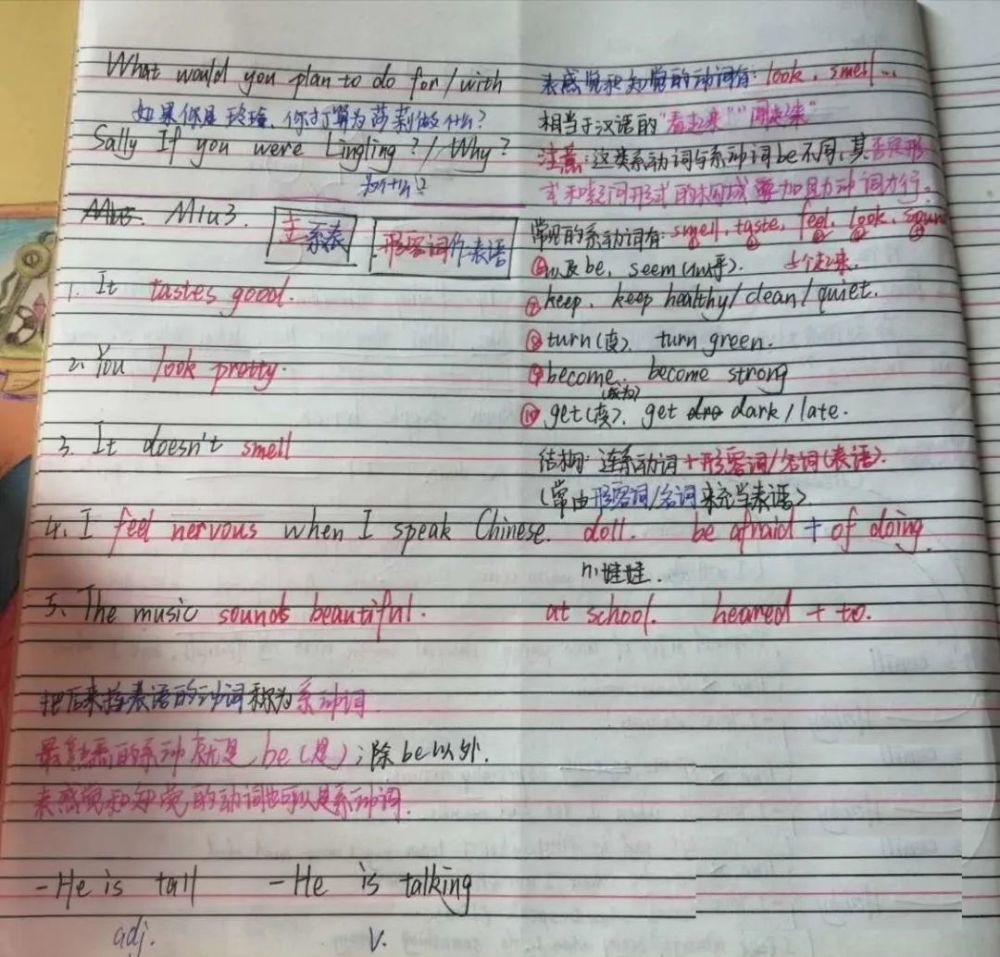 What would you plan to do for/with
如果你是玲玲,你打算为莎莉做什么?
Sally If you were Lingling?/Why?
为什么?
M1u3.
主系表
形容词作表语
1. It tastes good.
2. You look pretty.
3. It doesn't smell
4. I feel nervous when I speak Chinese.
5. The music sounds beautiful.
把后来接表语的动词称为系动词.
最熟悉的系动就是,be(是);除be以外.
表感觉和知觉的动词也可以是系动词.
-He is tall -He is talking
adj. v.
表感觉和知觉的动词有:look、smell...
相当于汉语的"看起来""闻起来"
注意:这类系动词与系动词be不同,其否定形
式和疑问形式的构成要加助动词才行。
常见的系动词有:smell, taste, feel, look, sound
⑥以及be, seem(似乎). 5个起来.
⑦keep. keep healthy/clean/quiet.
⑧turn(变). turn green.
⑨become. become strong
(成为)
⑩get(变). get dark/late.
结构:连系动词+形容词/名词(表语).
(常由形容词/名词来充当表语)
doll. be afraid + of doing.
小娃娃.
at school. heared + to.